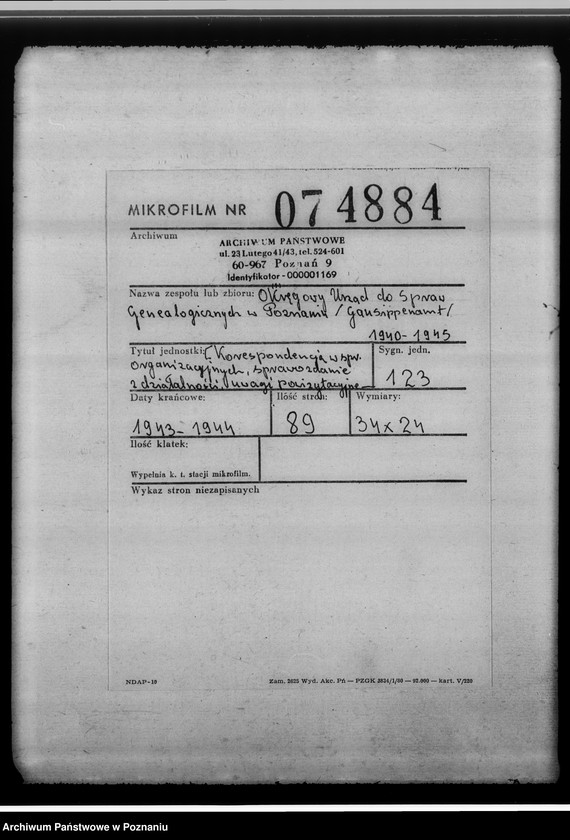 MIKROFILM NR 074884
Archiwum
ARCHIWUM PAŃSTWOWE
ul. 23 Lutego 41/43, tel. 524-601
60-967 Poznań 9
Identyfikator - 000001169
Nazwa zespołu lub zbioru: Okręgowy Urząd do Spraw
Genealogicznych w Poznaniu /Gausippenamt/
1940-1945
Tytuł jednostki: [Korespondencja w spr.
organizacyjnych, sprawozdanie
z działalności, uwagi powizytacyjne
Sygn. jedn.
123
Daty krańcowe:
1943-1944
Ilość stron:
89
Wymiary:
34x24
Ilość klatek:
Wypełnia k. t. stacji mikrofilm.
Wykaz stron niezapisanych
NDAP-18
Zam. 2625 Wyd. Akc. Pń — PZGK 2624/1/80 — 92.000 — kart. V/220
Archiwum Państwowe w Poznaniu